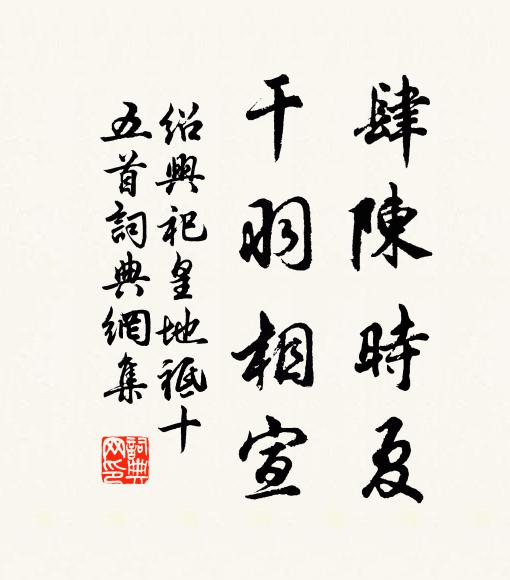 肆陳時夏
干羽相宣
紹興祀皇地祗十
五首詞典網集
詞典
网印